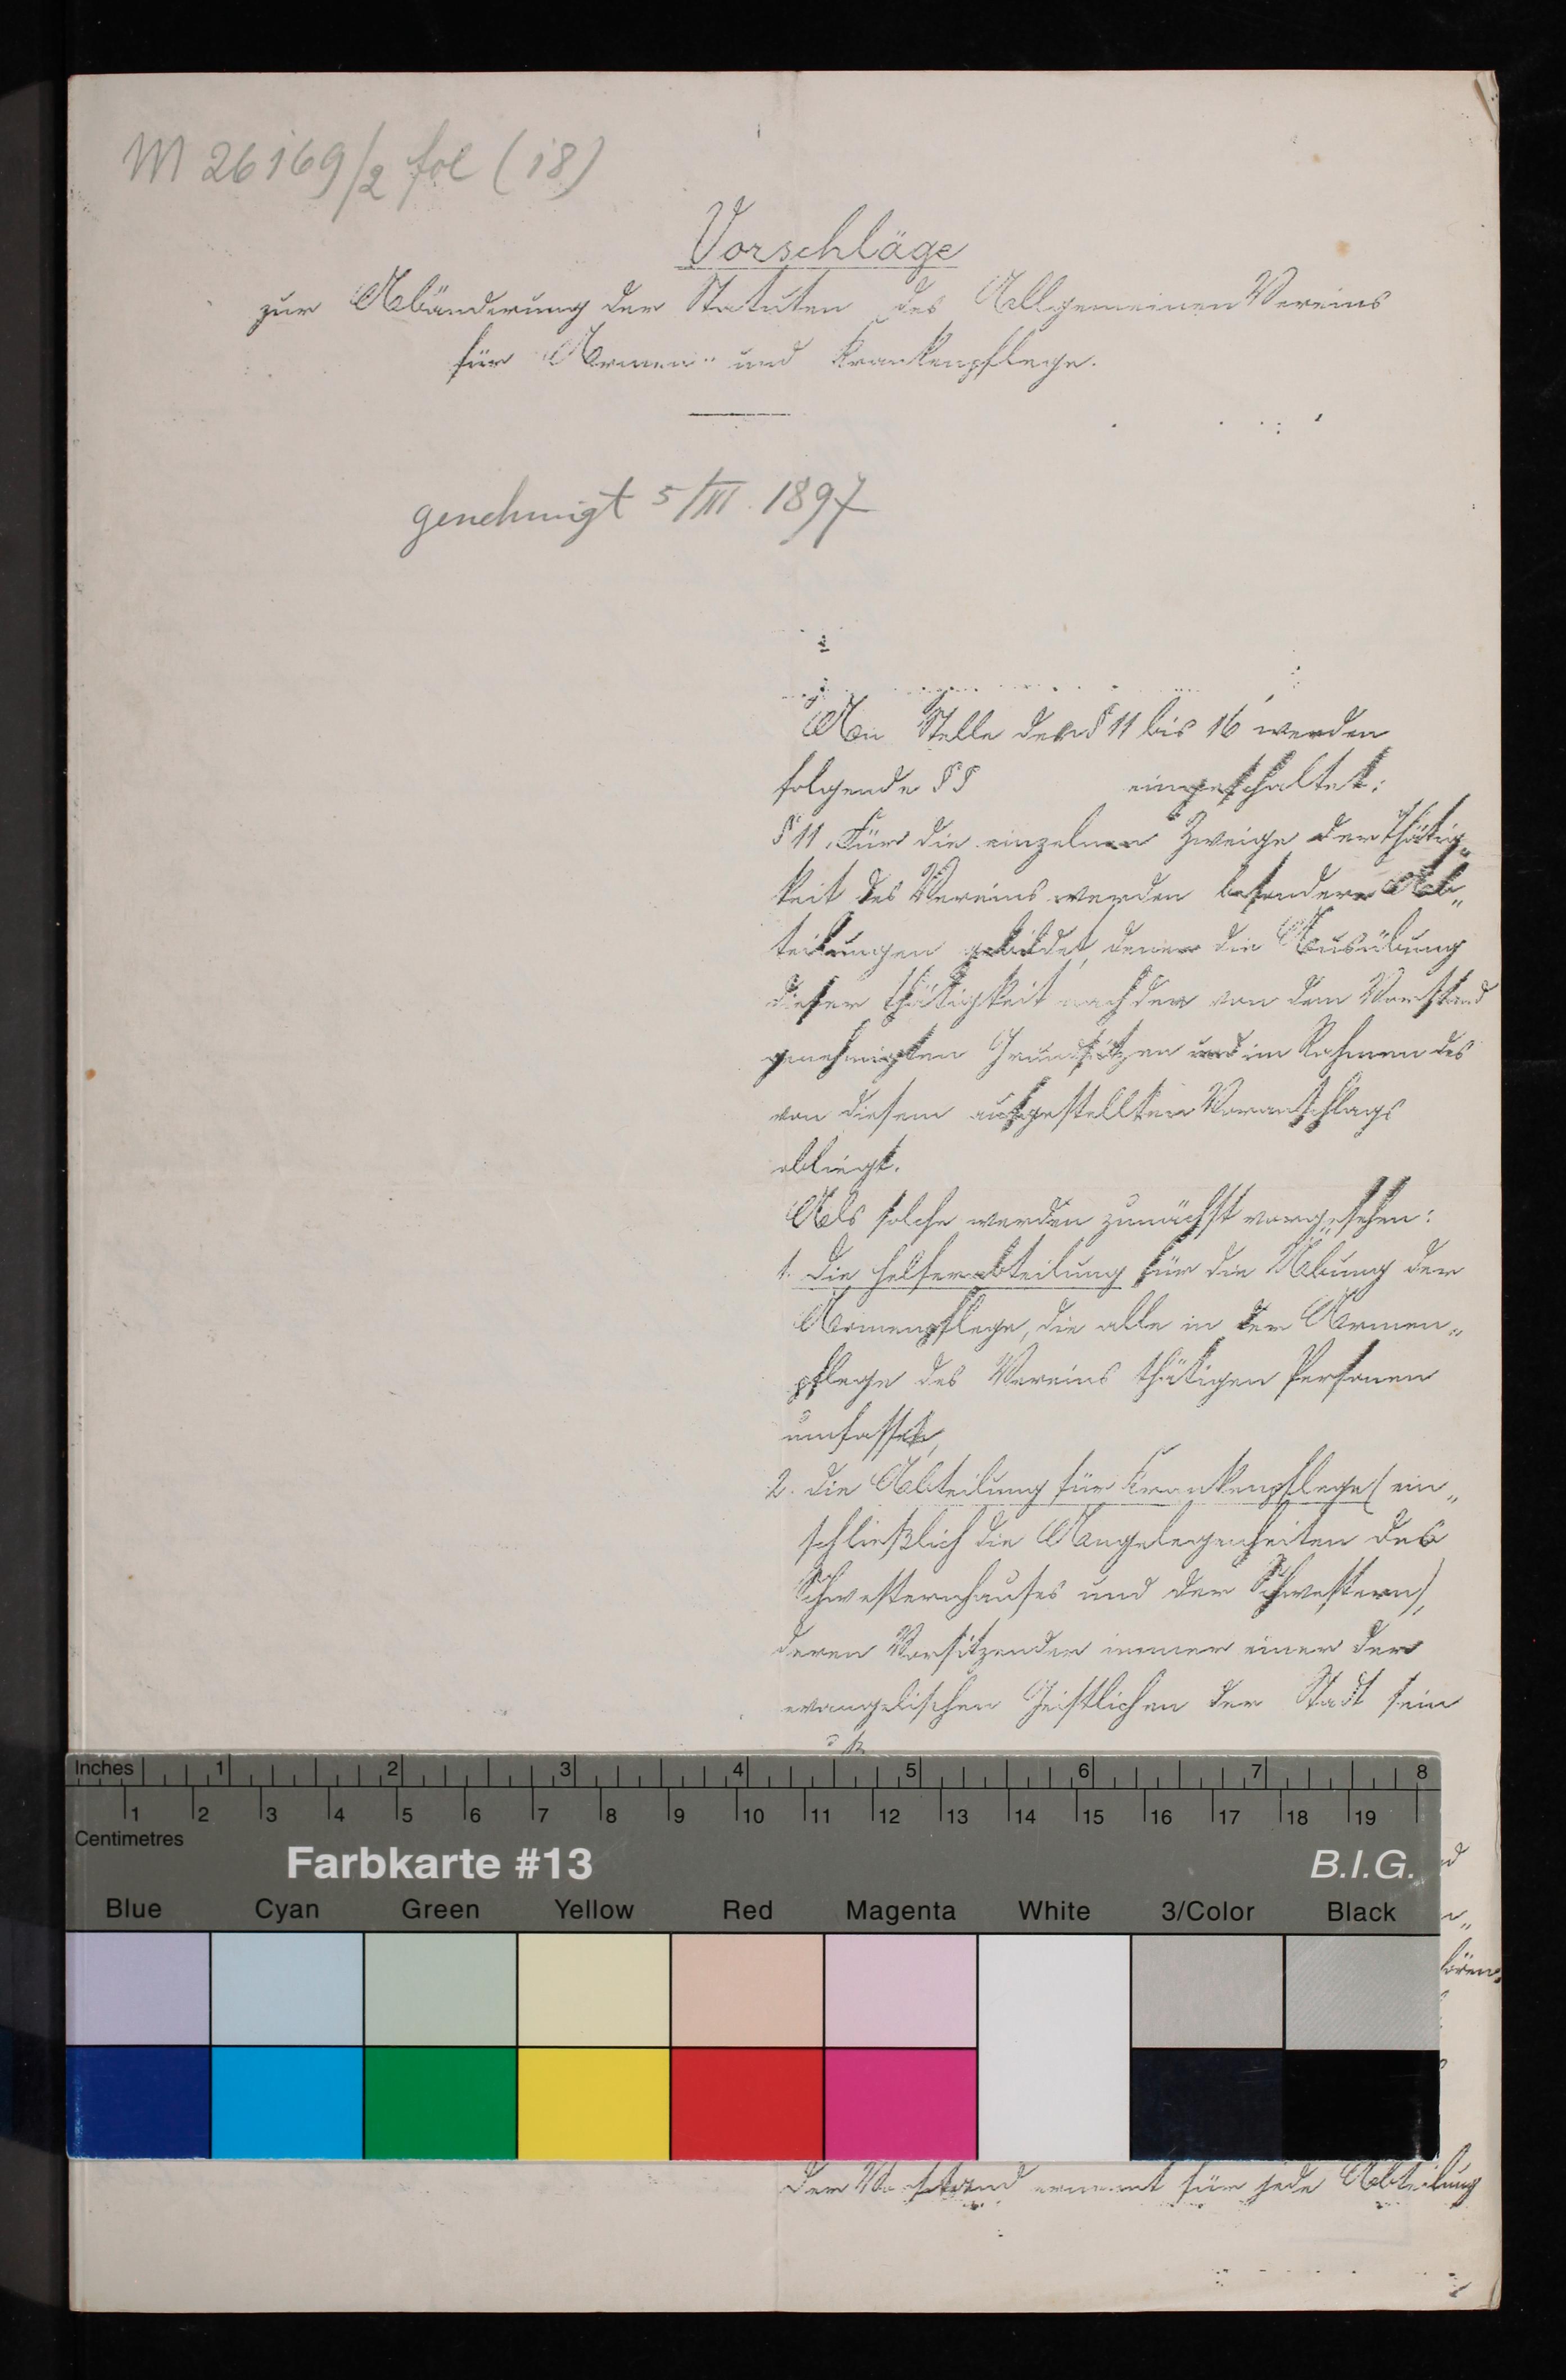 M 26169/2 fol (18)
Vorschläge
zur Abänderung der Statuten des Allgemeinen Vereins
für Armen- und Krankenpflege.
genehmigt 5/III. 1897
An Stelle der § 11 bis 16 werden
folgende §§ eingeschaltet:
§ 11. Für die einzelnen Zweige der Thätig„
keit des Vereins werden besondere Ab„
teilungen gebildet, denen die Ausübung
dieser Thätigkeit nach den von dem Vorstand
genehmigten Grundsätzen und im Rahmen des
von diesem aufgestellten Voranschlags
obliegt.
Als solche werden zunächst vorgesehen:
1. Die Helferabteilung für die Übung der
Armenpflege, die alle in der Armen„
pflege des Vereins thätigen Personen
umfasst,
2. die Abteilung für Krankenpflege (ein„
schließlich die Angelegenheiten des
Schwesternhauses und der Schwestern),
deren Vorsitzender immer einer der
evangelischen Geistlichen der Stadt sein
Inches 1 2 3 4 5 6 7 8
1 2 3 4 5 6 7 8 9 10 11 12 13 14 15 16 17 18 19
Centimetres
Farbkarte #13 B.I.G.
Blue Cyan Green Yellow Red Magenta White 3/Color Black
Der Vorstand ernennt für jede Abteilung